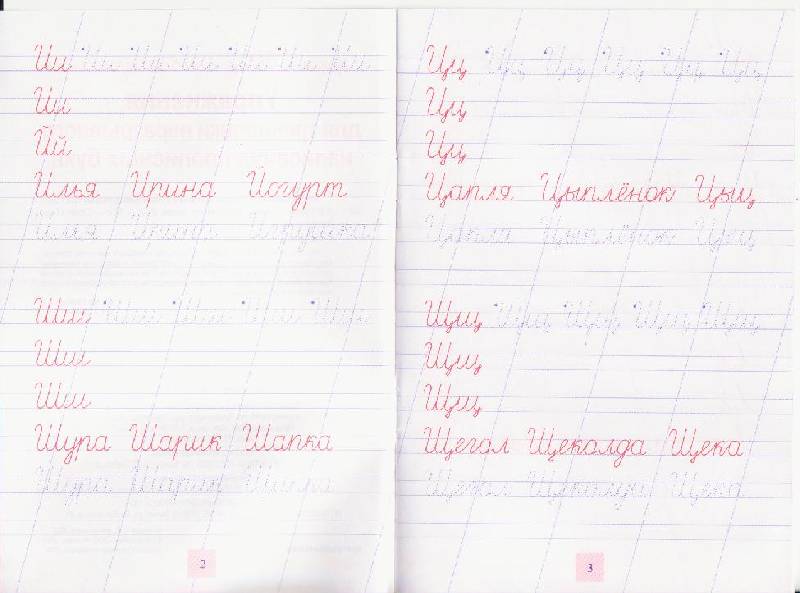 Ии Ии Ии Ии Ии Ии Ии
Ии
Йй
Илья Ирина Йогурт
Илья Ирина Игрушка
Шш Шш Шш Шш Шш
Шш
Шш
Шура Шарик Шапка
Шура Шарик Шапка
2
Цц Цц Цц Цц Цц Цц
Цц
Цц
Цапля Цыплёнок Цыц
Цапля Цыплёнок Цыц
Щщ Щщ Щщ Щщ Щщ
Щщ
Щщ
Щегол Щеколда Щека
Щегол Щеколда Щека
3